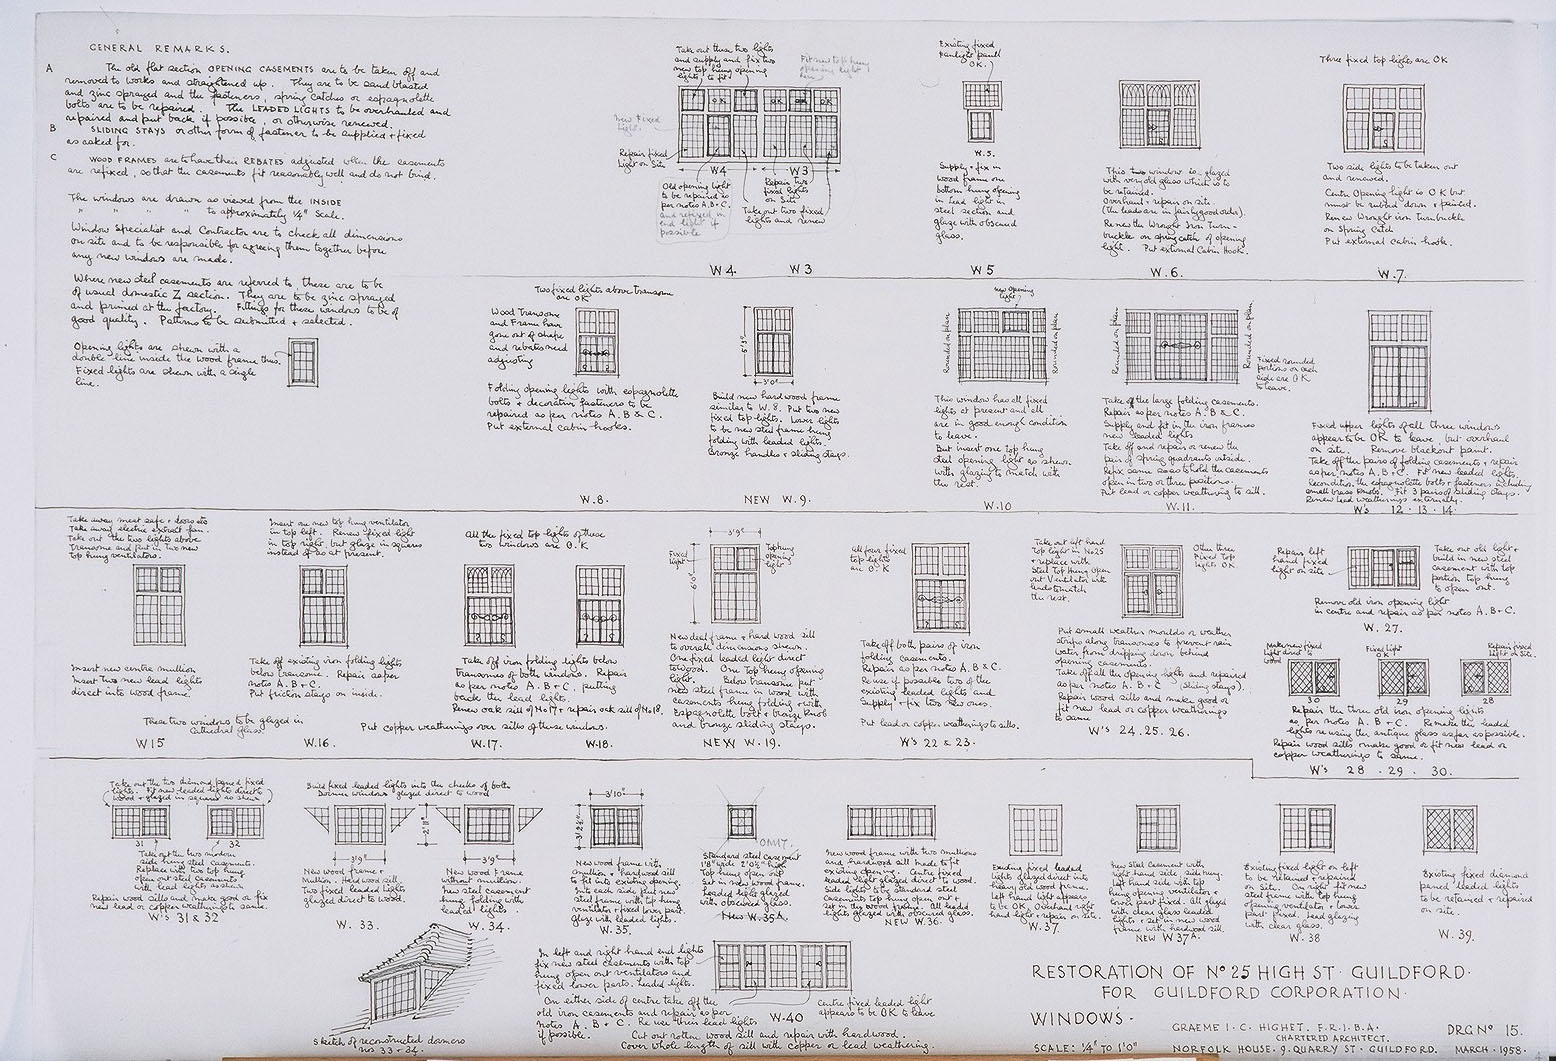 GENERAL REMARKS.
A
The old flat section OPENING CASEMENTS are to be taken off and
removed to works and straightened up. They are to be sand blasted
and zinc sprayed and the fasteners, spring catches or espagnolette
bolts are to be repaired. The LEADED LIGHTS to be overhauled and
repaired and put back if possible, or otherwise renewed.
B
SLIDING STAYS or other form of fastener to be supplied + fixed
as asked for.
C
WOOD FRAMES are to have their REBATES adjusted when the casements
are refixed, so that the casements fit reasonably well and do not bind.
The windows are drawn as viewed from the INSIDE
" " " " to approximately ¼" scale.
Window Specialist and Contractor are to check all dimensions
on site and to be responsible for agreeing them together before
any new windows are made.
Where new steel casements are referred to, these are to be
of usual domestic Z section. They are to be zinc sprayed
and primed at the factory. Fittings for these windows to be of
good quality. Patterns to be submitted + selected.
Opening lights are shewn with a
double line inside the wood frame thus.
Fixed lights are shewn with a single
line.
Take out these two lights
and supply and fix two
new top hung opening
lights to fit
Fit new top hung
opening light
here
OK
OK
OK
New Fixed
Light.
Repair fixed
Light on Site
W4
W3
Old opening light
to be repaired as
per notes A.B+C.
and refixed in
end light if
possible
Repair two
fixed lights
on Site
Take out two fixed
lights and renew
W4.
W3
Existing fixed
fanlight panel
OK.
W.5.
Supply + fix in
wood frame one
bottom hung opening
in Lead light in
steel section and
glaze with obscured
glass.
W5
This window is glazed
with very old glass which is to
be retained.
Overhaul + repair on site.
(the leads are in fairly good order).
Renew the Wrought Iron Turn-
buckle or spring catch of opening
light. Put external Cabin Hook.
W.6.
Three fixed top lights are OK
Two side lights to be taken out
and renewed.
Centre Opening light is OK but
must be rubbed down + painted.
Renew Wrought iron Turnbuckle
or Spring Catch
Put external cabin hook.
W.7.
Two fixed lights above transome
are OK
Wood Transome
and Frame have
gone out of shape
and rebates need
adjusting
Folding opening lights with espagnolette
bolts + decorative fasteners to be
repaired as per notes A. B & C.
Put external cabin hooks.
W.8.
5'3"
3'0"
Build new hardwood frame
similar to W.8. Put two new
fixed top lights. Lower lights
to be new steel frame hung
folding with leaded lights.
Bronze handles + sliding stays.
NEW W.9.
new opening
light
Rounded on plan
Rounded on plan
This window has all fixed
lights at present and all
are in good enough condition
to leave.
But insert one top hung
steel opening light as shewn
with glazing to match with
the rest.
W.10
Rounded on plan
Rounded on plan
Fixed rounded
portions on each
side are OK
to leave.
Take off the large folding casements.
Repair as per notes A. B & C.
Supply and fit in the iron frames
new leaded lights
Take off and repair or renew the
pair of spring quadrants outside.
Refix same so as to hold the casements
open in two or three positions.
Put lead or copper weathering to sill.
W.11.
Fixed upper lights of all three windows
appear to be OK to leave, but overhaul
on site. Remove blackout paint.
Take off the pairs of folding casements + repair
as per notes A.B + C. Fit new leaded lights.
Recondition the espagnolette bolts + fasteners including
small brass knobs. Fit 3 pairs of sliding stays.
Renew lead weatherings externally.
W's 12 · 13 · 14·
Take away meat safe + doors etc
Take away electric extract fan.
Take out the two lights above
Transome and put in two new
top hung ventilators.
Insert new centre mullion
Insert two new lead lights
direct into wood frame.
W15
These two windows to be glazed in
Cathedral glass.
Insert one new top hung ventilator
in top left. Renew fixed light
in top right but glaze in squares
instead of as at present.
Take off existing iron folding lights
below transome. Repair as per
notes A. B + C.
Put friction stays on inside.
W.16.
All the fixed top lights of these
two windows are O.K
Take off iron folding lights below
transomes of both windows. Repair
as per notes A. B + C, putting
back the lead lights.
Renew oak sill of No 17 + repair oak sill of No 18.
Put copper weatherings over sills of these windows.
W.17.
W.18.
3'9"
Fixed
light
Top hung
opening
light
6'0"
New deal frame + hard wood sill
to overall dimensions shewn.
One fixed leaded light direct
to wood. One Top hung opening
light. Below transome put
new steel frame in wood with
casements hung folding + with
Espagnolette bolt + bronze knob
and bronze sliding stays.
NEW W.19.
All four fixed
top lights
are O·K
Take off both pairs of iron
folding casements.
Repair as per notes A. B & C.
Re use if possible two of the
existing leaded lights and
Supply + fix two new ones.
Put lead or copper weatherings to sills.
W's 22 & 23.
Take out left hand
Top light in No 25
+ replace with
Steel Top Hung open
out Ventilator like
the rest.
Other three
Fixed Top
lights OK
Put small weather moulds or weather
strips along transomes to prevent rain
water from dripping down behind
opening casements.
Take off all the opening lights and repaired
as per notes A. B + C (Sliding stays).
Repair wood sills and make good or
fit new lead or copper weatherings
to same
W's 24. 25. 26.
Repairs left
hand fixed
light on site
Take out old light +
build in new steel
casement with top
portion top hung
to open out.
Remove old iron opening light
in centre and repair as per notes A. B + C.
W. 27.
Make new fixed
light direct to
wood
Fixed light
OK
Repair fixed
light on site.
30
29
28
Repair the three old iron opening lights
as per notes A. B + C. Remake the leaded
lights re using the antique glass as far as possible.
Repair wood sills + make good or fit new lead or
copper weatherings to same.
W's 28 · 29 · 30.
Take out the two diamond paned fixed
lights. Fit new leaded lights direct to
wood + glazed in squares as shewn
31
32
Take out the two modern
side hung steel casements.
Replace with two top hung
open out steel casements
with lead lights as shewn
Repair wood sills and make good or fix
new lead or copper weatherings to same.
W's 31 & 32
Build fixed leaded lights into the cheeks of both
Dormer windows glazed direct to wood
3'9"
2'11"
3'9"
New wood frame +
Mullion. Hardwood sill.
Two fixed leaded lights
glazed direct to wood.
W. 33.
New wood Frame
without mullion
New steel casement
hung folding with
leaded lights.
W. 34.
Sketch of reconstructed dormers
nos 33 + 34.
3'10"
3'2¾"
New wood frame with
mullion + hardwood sill
to fit into existing opening.
Into each side put new
steel frame with top hung
ventilator + fixed lower part.
Glaze with leaded lights.
W.35.
ONLY.
Standard steel casement
1'8" wide 2'0½" high
Top hung open out
Set in new wood frame.
Leaded light glazed
with obscured glass.
New W.35A.
New wood frame with two mullions
and hardwood sill made to fit
existing opening. Centre fixed
leaded light glazed direct to wood.
Side lights to be standard steel
casements top hung open out +
set in the wood frame. All leaded
lights glazed with obscured glass.
NEW W.36.
Existing fixed leaded
lights glazed direct into
heavy old wood frame.
Left hand light appears
to be OK. Overhaul right
hand light + repair on site.
W.37.
New steel casement with
right hand side hung.
left hand side with top
hung opening ventilator +
lower part fixed. All glazed
with clear glass leaded
lights + set in new wood
frame with hardwood sill.
NEW W37A.
Existing fixed light on left
to be retained + repaired
on site. On right fit new
steel frame with top hung
opening ventilator + lower
part fixed. Lead glazing
with clear glass.
W.38
Existing fixed diamond
paned leaded lights
to be retained + repaired
on site.
W.39.
In left and right hand end lights
fix new steel casements with top
hung open out ventilators and
fixed lower parts. Leaded lights.
On either side of centre take off the
old iron casements and repair as per
notes A. B + C. Re use their lead lights
if possible.
W.40
Centre fixed leaded light
appears to be OK to leave
Cut out rotten wood sill and repair with hardwood.
Cover whole length of sill with copper or lead weathering.
RESTORATION OF No 25 HIGH ST · GUILDFORD·
FOR GUILDFORD CORPORATION·
WINDOWS·
SCALE: ¼" TO 1'0"
GRAEME I·C·HIGHET. F·R·I·B·A·
CHARTERED ARCHITECT.
NORFOLK HOUSE· 9· QUARRY ST· GUILDFORD.
DRG No 15.
MARCH·1958·